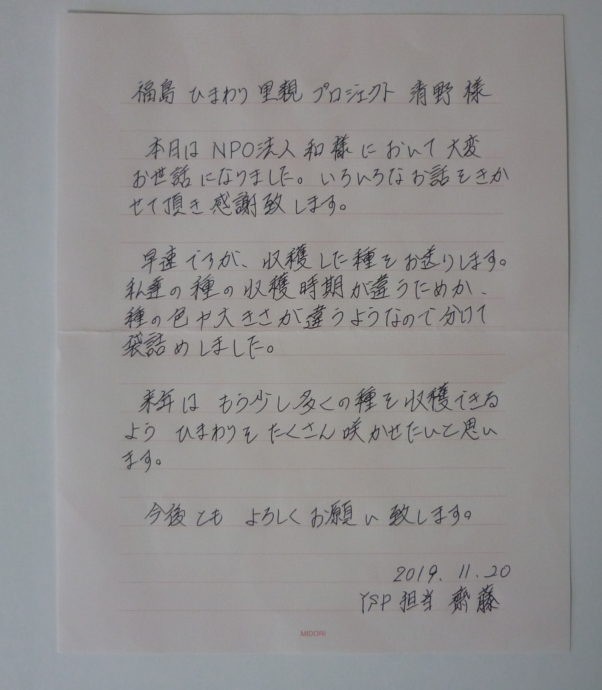 福島 ひまわり 里親 プロジェクト 清野 様
本日は NPO法人 和 様 に おいて 大変
お世話 になりました。いろいろなお話をきか
せて頂き 感謝致 します。
早速 ですが、収穫した種をお送りします。
私達の 種の 収穫時期が違うためか、
種の色や大きさが違うようなので分けて
袋詰めしました。
来年は もう少し多くの種を収穫できる
よう ひまわりを たくさん 咲かせたいと思い
ます。
今後とも よろしくお願い致します。
2019. 11. 20
YSP 担当 齊藤
MIDORI